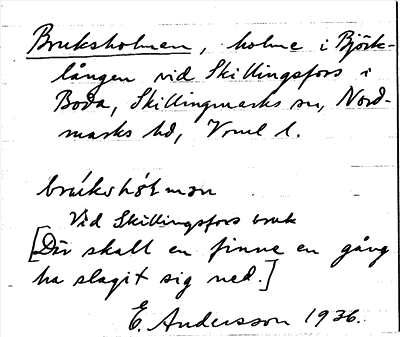 Bruksholmen, holme i Björk-
lången vid Skillingsfors i
Boda, Skillingmarks sn, Nord-
marks hd, Vrml l.
brúkshòlmən
Vid Skillingsfors bruk
[Där skall en finne en gång
ha slagit sig ned.]
E. Andersson 1936.